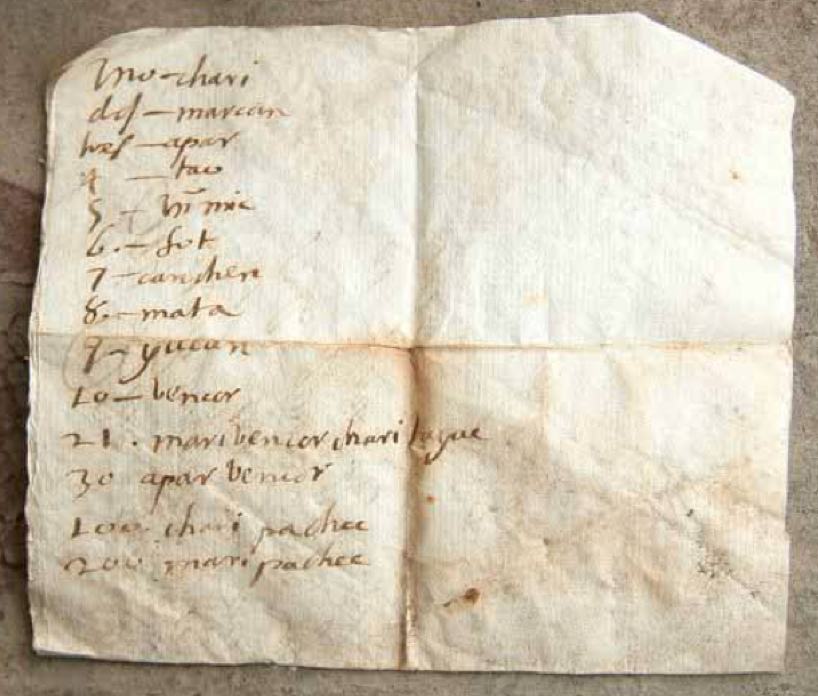 uno – chari
dos – marian
tres – apar
4 – tau
5 – himic
6. – sut
7 – canchen
8. – mata
9 – yucan
10 – bencor
21. maribencor chari tayac
30 apar bencor
100 chari pachac
200 mari pachac